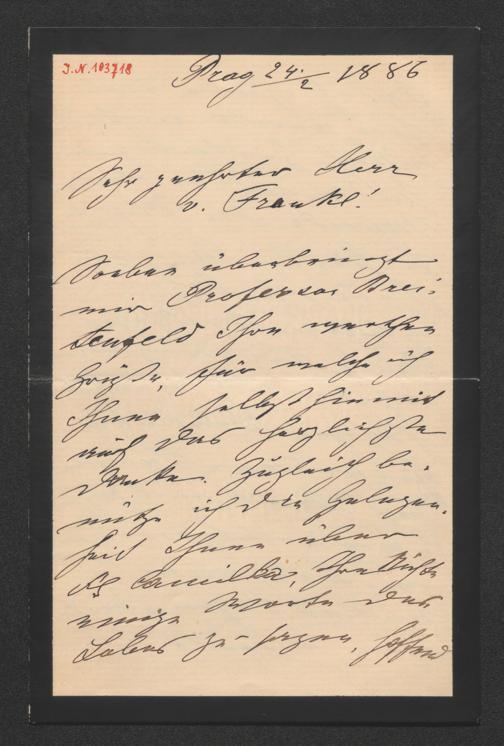 J.N. 103718
Prag 24./2 1886
Sehr geehrter Herr
v. Frankl!
Soeben überbringt
mir Professor Brei-
tenfeld Ihre werthen
Grüße, für welche ich
Ihnen selbst hiermit
auf das herzlichste
danke. Zugleich be-
nütze ich die Gelegen-
heit Ihnen über
Camilla, Ihre Nichte
einige Worte des
Lobes zu sagen, hoffend